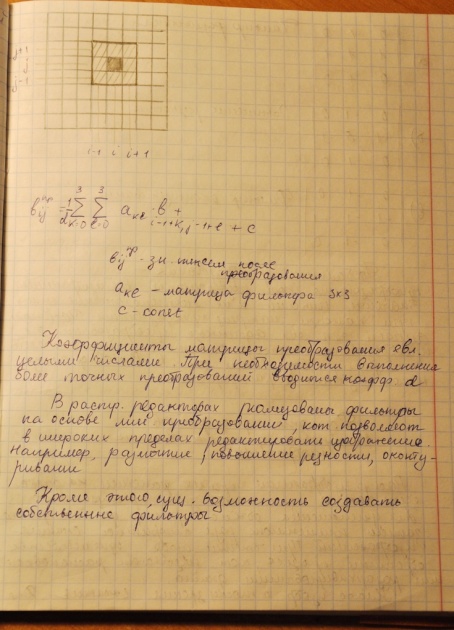 j+1
j
j-1
i-1 i i+1
bᵢⱼᵖʳ = 1/d Σ³ₖ₌₀ Σ³ₗ₌₀ aₖₗ · b i-1+k, j-1+l + c
bᵢⱼ - зн пиксел после
преобразования
aₖₗ - матрица фильтра 3x3
c - const
Коэффициенты матрицы преобразования явл.
целыми числами. При необходимости выполнения
более точных преобразований вводится коэфф d
В растр. редакторах реализованы фильтры
на основе преобразований, кот позволяют
в широких пределах редактировать изображение.
Например, размытие, повышение резкости, оконту-
ривании
Кроме этого, сущ. возможность создавать
собственные фильтры